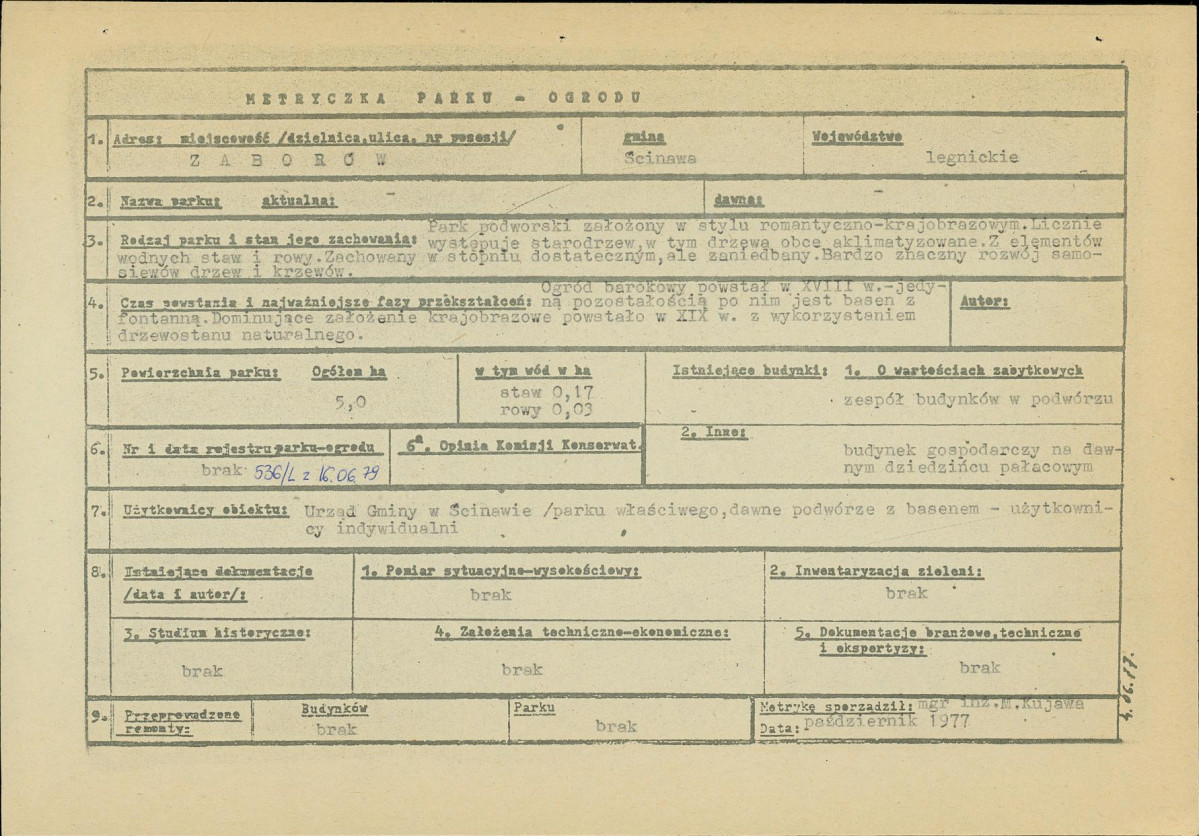 METRYCZKA PARKU - OGRODU
1. Adres: miejscowość /dzielnica,ulica, nr posesji/ gmina Województwo
ZABORÓW Ścinawa legnickie
2. Nazwa parku: aktualna: - dawna: -
3. Rodzaj parku i stan jego zachowania: Park podworski założony w stylu romantyczno-krajobrazowym.Licznie
występuje starodrzew,w tym drzewa obce aklimatyzowane.Z elementów
wodnych staw i rowy.Zachowany w stopniu dostatecznym,ale zaniedbany.Bardzo znaczny rozwój samo-
siewów drzew i krzewów.
4. Czas powstania i najważniejsze fazy przekształceń: Ogród barokowy powstał w XVIII w.-jedy-
ną pozostałością po nim jest basen z Autor:
fontanną.Dominujące założenie krajobrazowe powstało w XIX w. z wykorzystaniem
drzewostanu naturalnego.
5. Powierzchnia parku: Ogółem ha w tym wód w ha Istniejące budynki: 1. O wartościach zabytkowych
5,0 staw 0,17 zespół budynków w podwórzu
rowy 0,03
6. Nr i data rejestru parku-ogrodu 6a. Opinia Komisji Konserwat. 2. Inne:
brak 536/L z 16.06.79 budynek gospodarczy na daw-
nym dziedzińcu pałacowym
7. Użytkownicy obiektu: Urząd Gminy w Ścinawie /parku właściwego,dawne podwórze z basenem - użytkowni-
cy indywidualni
8. Istniejące dokumentacje 1. Pomiar sytuacyjno-wysokościowy: 2. Inwentaryzacja zieleni:
/data i autor/: brak brak
3. Studium historyczne: 4. Założenia techniczno-ekonomiczne: 5. Dokumentacje branżowe,techniczne
i ekspertyzy:
brak brak brak
9. Przeprowadzone remonty: Budynków Parku Metrykę sporządził: mgr inż.M.Kujawa
brak brak Data: październik 1977